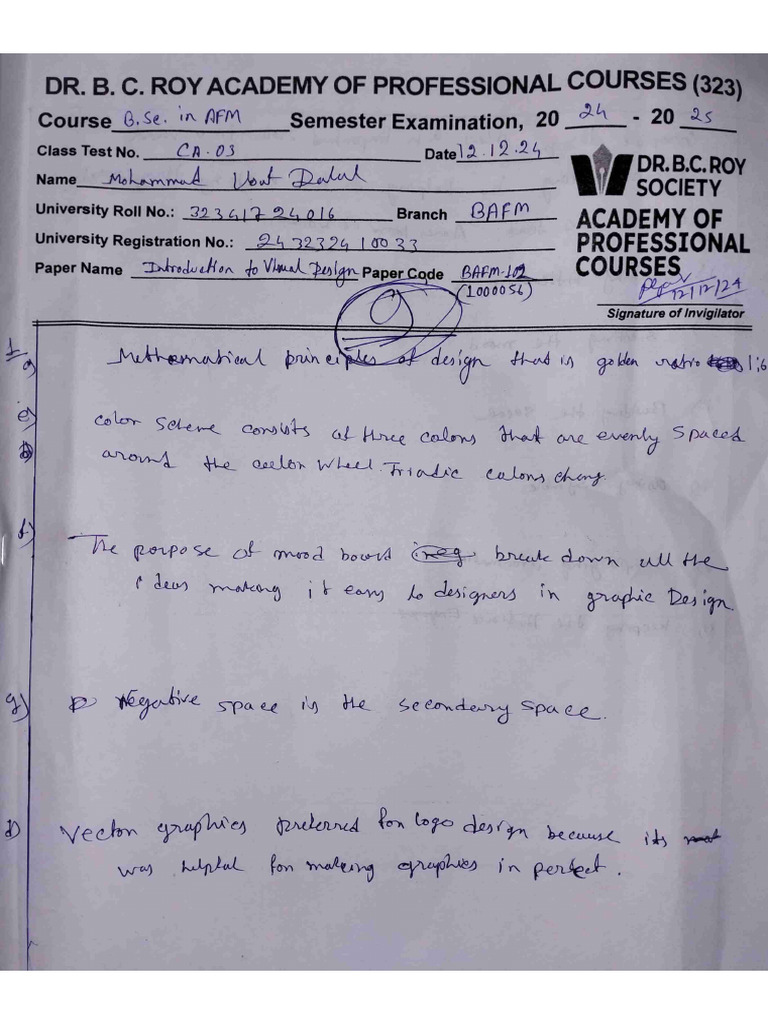 DR. B. C. ROY ACADEMY OF PROFESSIONAL COURSES (323)
Course B.Sc. in AFM Semester Examination, 20 24 - 20 25
Class Test No. CA-03 Date 12.12.24
Name Mohammad Dalal
University Roll No.: 32341724016 Branch BAFM
University Registration No.: 243232410033
Paper Name Introduction to Visual Design Paper Code BAFM-102
(1000056)
DR. B.C. ROY
SOCIETY
ACADEMY OF
PROFESSIONAL
COURSES
12/12/24
Signature of Invigilator
1/a) Methematical principles of design that is golden ratio 1:6
e) color scheme consists of three colors that are evenly spaced
around the coelor wheel. Triadic colors
f) The porpose of mood board break down all the
ideas making it easy to designers in graphic Design
g) Negative space is the secondary space.
d) Vector graphics preferred for logo design because its
was helpful for making graphics in perfect.